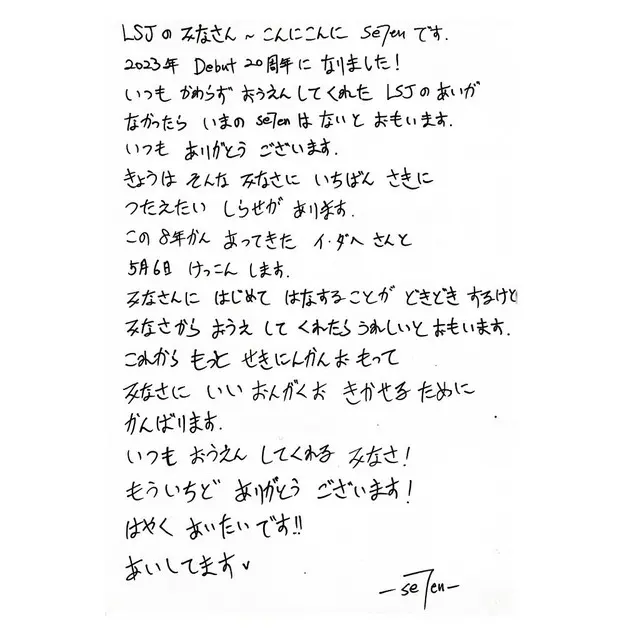 LSJの みなさん ~ こんにこんに se7enです.
2023年 Debut 20周年に なりました!
いつも かわらず おうえんしてくれた LSJの あいが
なかったら いまの se7enは ないと おもいます.
いつも ありがとう ございます.
きょうは そんな みなさに いちばん さきに
つたえたい しらせが あります.
この 8年かん よってきた イ・ダヘ さんと
5月6日 けっこん します.
みなさんに はじめて はなすることが どきどき するけと
みなさから おうえ して くれたら うれしいと おもいます.
これから もっと せきにんかんお もって
みなさに いい おんがくお きかせる ために
かんばります.
いつも おうえん してくれる みなさ!
もういちど ありがとう ございます!
はやく あいたいです!!
あいしてます♥
-se7en-